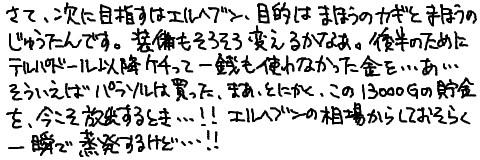 さて、次に目指すはエルヘブン、目的はまほうのカギとまほうの
じゅうたんです。装備もそろそろ変えるかなぁ。後半のために
テルパドール以降ケチって一銭も使わなかった金を…あ…
そういえばパラソルは買った、まあ、とにかく、この13000Gの貯金
を、今こそ放出するとき…!! エルヘブンの相場からしておそらく
一瞬で蒸発するけど…!!